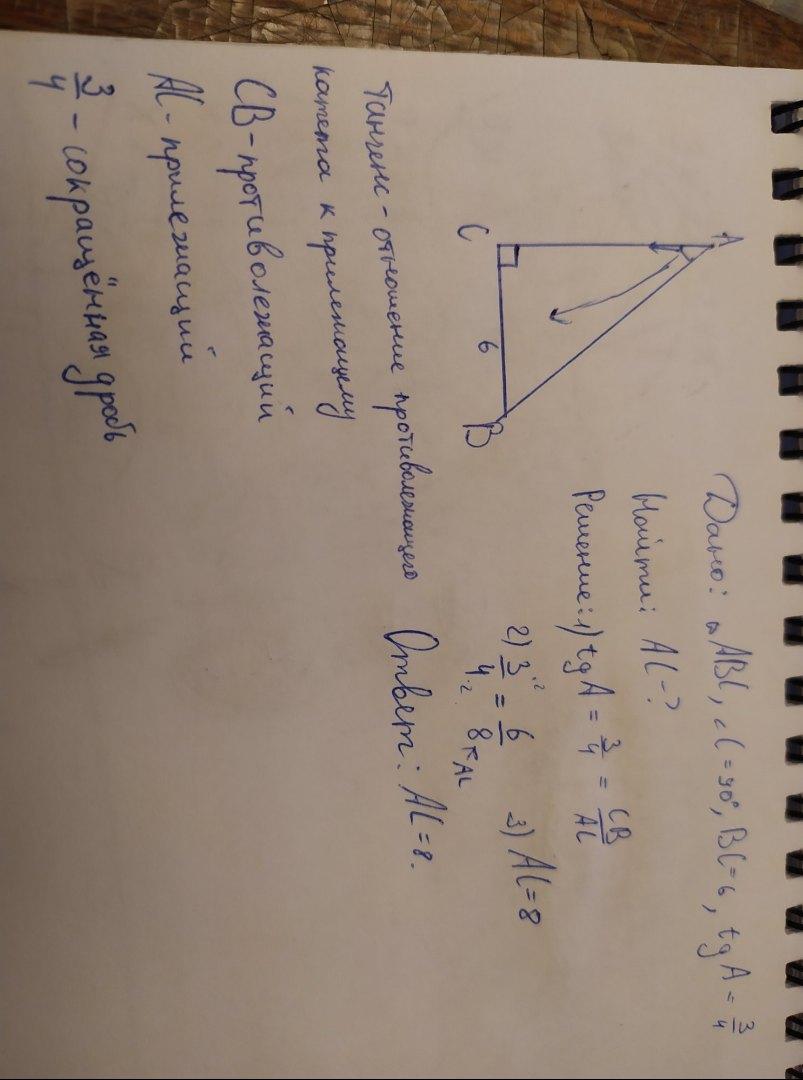 Дано: ⊿ABC, ∠C=90°, BC=6, tg A = 3/4
Найти: AC-?
Решение: 1) tg A = 3/4 = CB/AC
2) 3·2/4·2 = 6/8 ↖AC
3) AC=8
A
C
6
B
Тангенс - отношение противолежащего
катета к прилежащему
CB - противолежащий
AC - прилежащий
3/4 - сокращённая дробь
Ответ: AC=8.